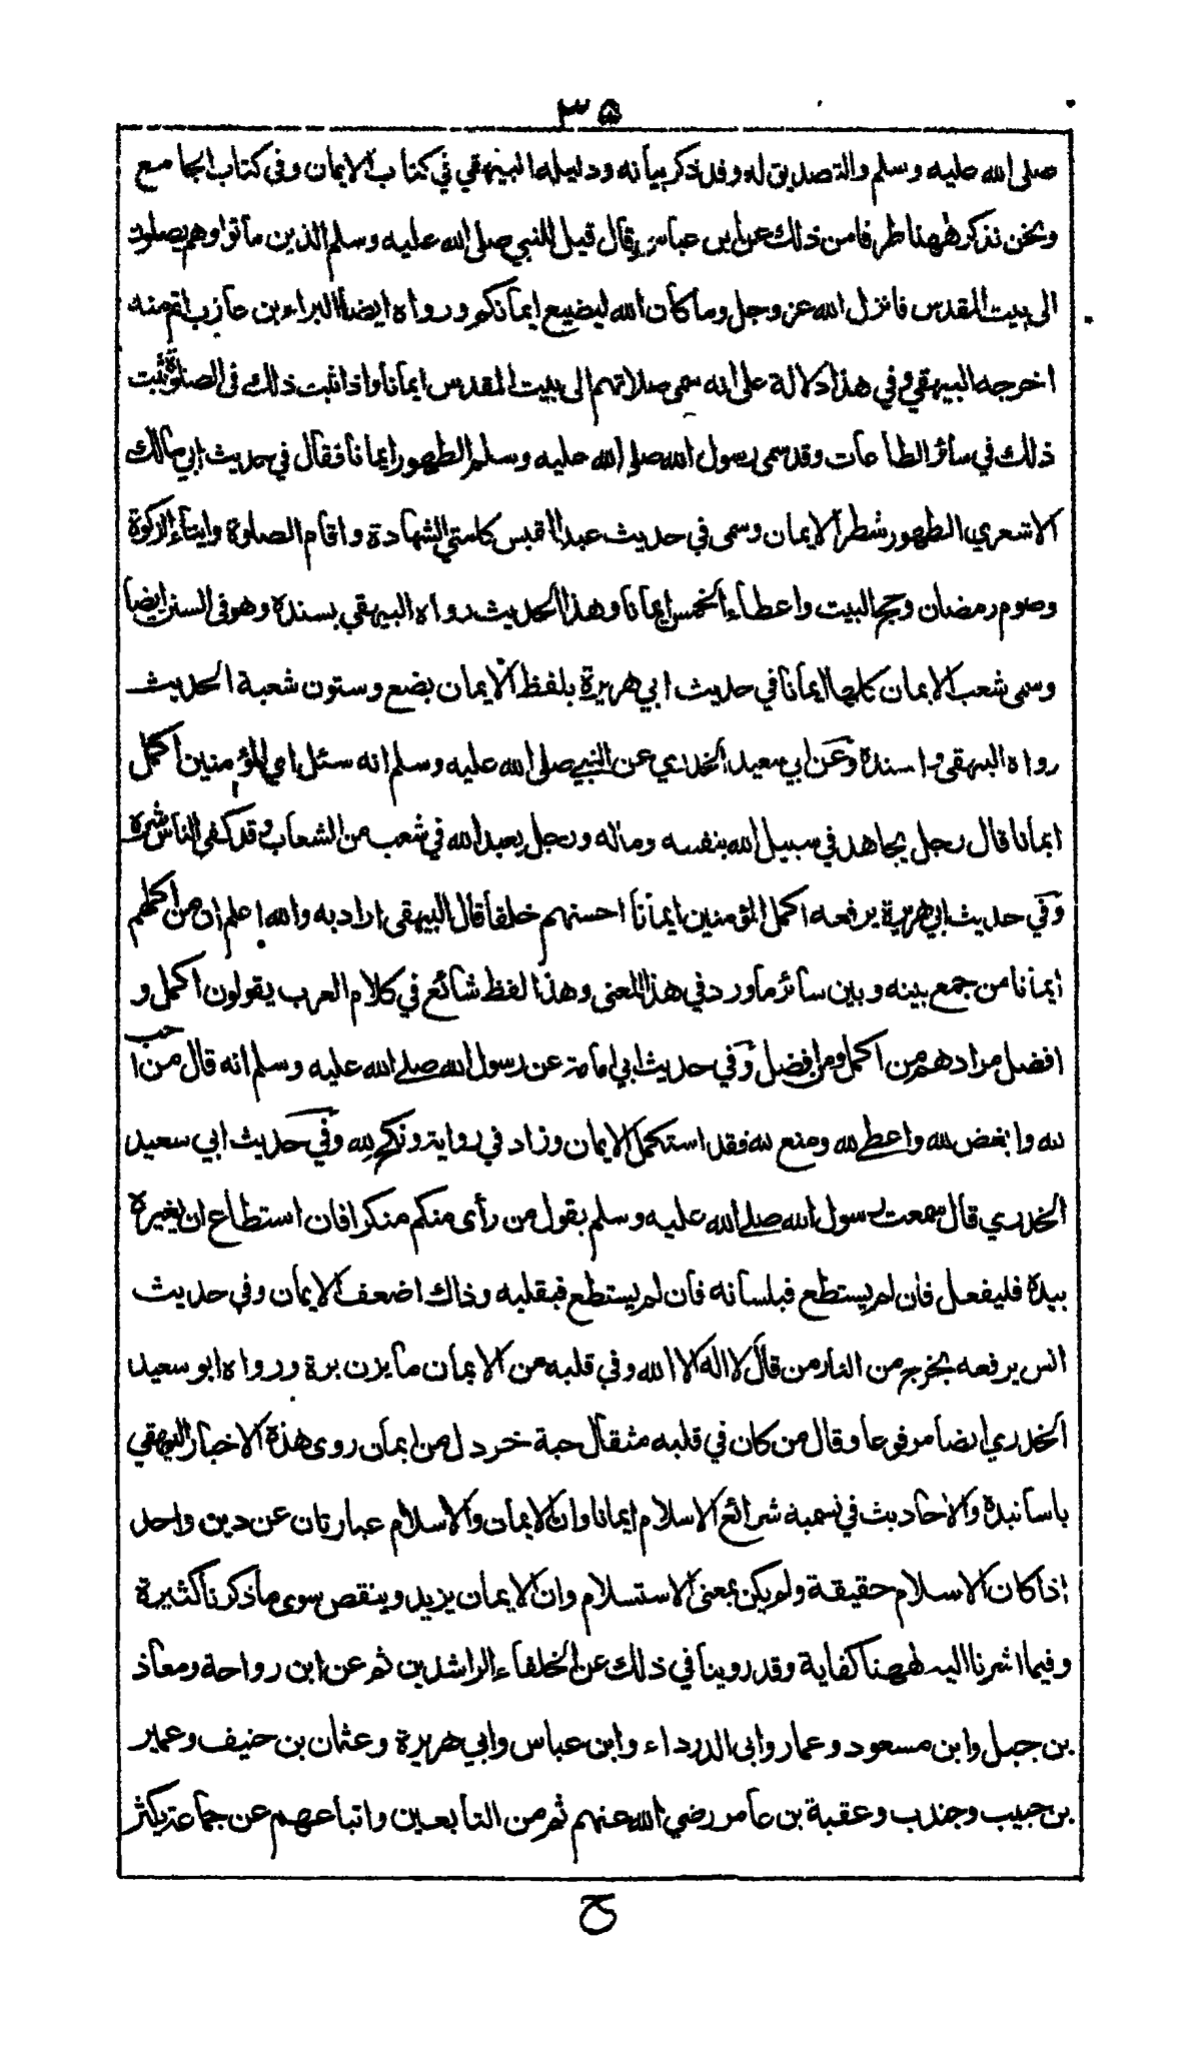 ٣٥
صلى الله عليه وسلم والتصديق له وقد ذكر بيانه ودليله البيهقي في كتاب الايمان وفي كتاب الجامع
ونحن نذكر ههنا طرفا من ذلك عن ابن عباس قال قيل للنبي صلى الله عليه وسلم الذين ماتوا وهم يصلون
الى بيت المقدس فانزل الله عز وجل وما كان الله ليضيع ايمانكم ورواه ايضا البراء بن عازب اتم منه
اخرجه البيهقي وفي هذا دلالة على انه سمى صلاتهم الى بيت المقدس ايمانا واذا ثبت ذلك في الصلوة ثبت
ذلك في سائر الطاعات وقد سمى رسول الله صلى الله عليه وسلم الطهور ايمانا فقال في حديث ابي مالك
الاشعري الطهور شطر الايمان وسمى في حديث عبد القيس كلمتي الشهادة واقام الصلوة وايتاء الزكوة
وصوم رمضان وحج البيت واعطاء الخمس ايمانا وهذا الحديث رواه البيهقي بسنده وهو في السنن ايضا
وسمى شعب الايمان كلها ايمانا في حديث ابي هريرة بلفظ الايمان بضع وستون شعبة الحديث
رواه البيهقي واسنده وعن ابي سعيد الخدري عن النبي صلى الله عليه وسلم انه سئل اي المؤمنين اكمل
ايمانا قال رجل يجاهد في سبيل الله بنفسه وماله ورجل يعبد الله في شعب من الشعاب وقد كفى الناس شره
وفي حديث ابي هريرة يرفعه اكمل المؤمنين ايمانا احسنهم خلقا قال البيهقي اراد به والله اعلم ان من اكملهم
ايمانا من جمع بينه وبين سائر ما ورد في هذا المعنى وهذا لفظ شائع في كلام العرب يقولون اكمل و
افضل مرادهم من اكمل ومن افضل وفي حديث ابي امامة عن رسول الله صلى الله عليه وسلم انه قال من احب
لله وابغض لله واعطى لله ومنع لله فقد استكمل الايمان وزاد في رواية ونكح لله وفي حديث ابي سعيد
الخدري قال سمعت رسول الله صلى الله عليه وسلم يقول من رأى منكم منكرا فان استطاع ان يغيره
بيده فليفعل فان لم يستطع فبلسانه فان لم يستطع فبقلبه وذاك اضعف الايمان وفي حديث
انس يرفعه يخرج من النار من قال لا اله الا الله وفي قلبه من الايمان ما يزن برة ورواه ابو سعيد
الخدري ايضا مرفوعا وقال من كان في قلبه مثقال حبة خردل من ايمان روى هذه الاخبار البيهقي
باسانيده والاحاديث في تسمية شرائع الاسلام ايمانا وان الايمان والاسلام عبارتان عن دين واحد
اذا كان الاسلام حقيقة ولم يكن بمعنى الاستسلام وان الايمان يزيد وينقص سوى ما ذكرنا كثيرة
وفيما اشرنا اليه ههنا كفاية وقد روينا في ذلك عن الخلفاء الراشدين ثم عن ابن رواحة ومعاذ
بن جبل وابن مسعود وعمار وابي الدرداء وابن عباس وابي هريرة وعثمان بن حنيف وعمير
بن حبيب وجندب وعقبة بن عامر رضي الله عنهم ثم من التابعين واتباعهم عن جماعة يكثر
ح